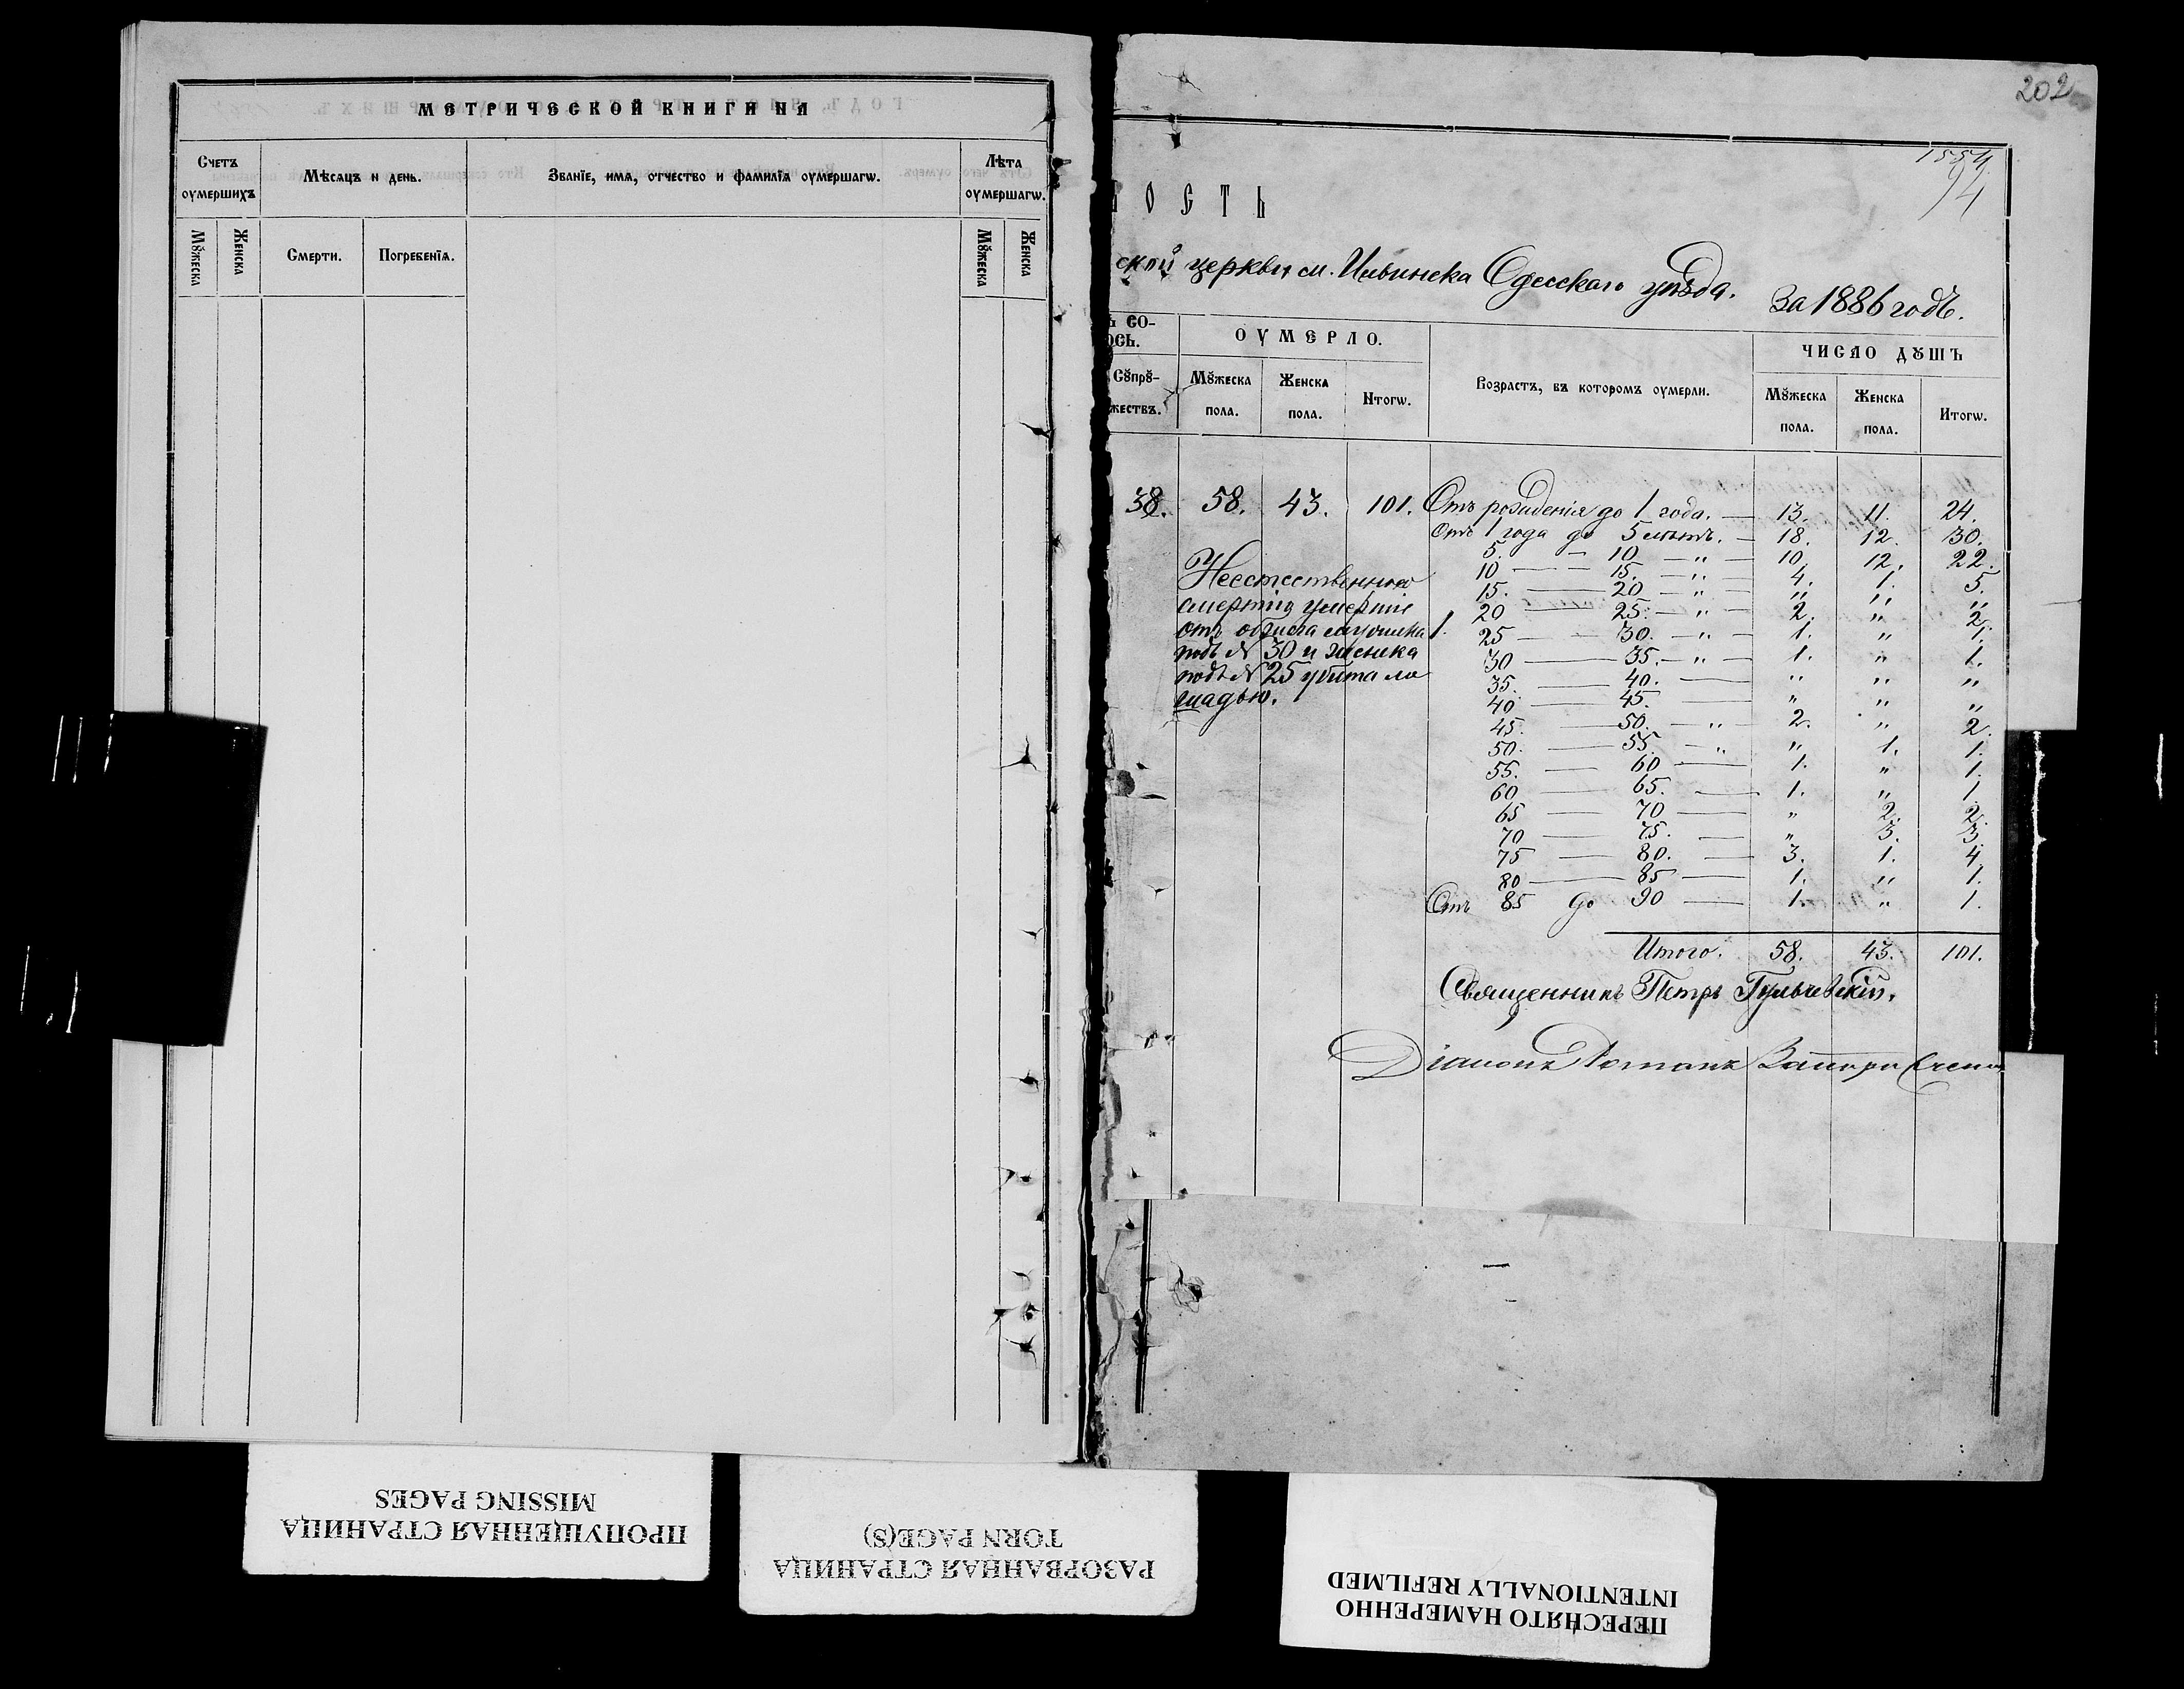 МЕТРИЧЕСКОЙ КНИГИ НА
Счетъ оумершихъ
Мѣсяцъ и день.
Званїе, имя, отчество и фамилїя оумершагѡ.
Лѣта оумершагѡ.
Мꙋжеска
Женска
Смерти.
Погребенїя.
Мꙋжеска
Женска
202
1554
94
ОСТЬ
ской церкви м. Ильинска Одесскаго уѣзда. За 1886 годъ.
СО-
ОСЬ.
ОУМЕРЛО.
ЧИСЛО ДꙊШЪ
Сꙋпрꙋ-
жествъ.
Мꙋжеска пола.
Женска пола.
Итогѡ.
Возрастъ, въ которомъ оумерли.
Мꙋжеска пола.
Женска пола.
Итогѡ.
38. 58. 43. 101. Отъ рожденія до 1 года. — 13. 11. 24.
Отъ 1 года до 5 лѣтъ. — 18. 12. 30.
5. — 10 — „ — 10. 12. 22.
10 — 15. — „ 4. 1. 5.
15. — 20 — „ „ „ „
20 — 25. — „ — 2. „ 2.
25 — 30. — „ — 1. „ 1.
30 — 35. — „ — 1. „ 1.
35. — 40. — „ „ „
40 — 45. — „ „ „
45. — 50. — „ — 2. „ 2.
50. — 55. — „ „ 1. 1.
55. — 60 — 1. „ 1.
60 — 65. — 1. „ 1.
65 — 70 — „ 2. 2.
70 — 75. — „ 3. 3.
75 — 80. — 3. 1. 4.
80 — 85 — 1. „ 1.
Отъ 85 до 90 — 1. „ 1.
Неестественною
смертію умершіе
отъ мужска 1.
подъ № 30 и женска
подъ № 25 убита ло
шадью.
Итого. 58. 43. 101.
Священникъ Петръ Гульчевскій.
Діаконъ Романъ
ПРОПУЩЕННАЯ СТРАНИЦА
MISSING PAGES
РАЗОРВАННАЯ СТРАНИЦА
TORN PAGE(S)
ПЕРЕСНЯТО НАМЕРЕННО
INTENTIONALLY REFILMED